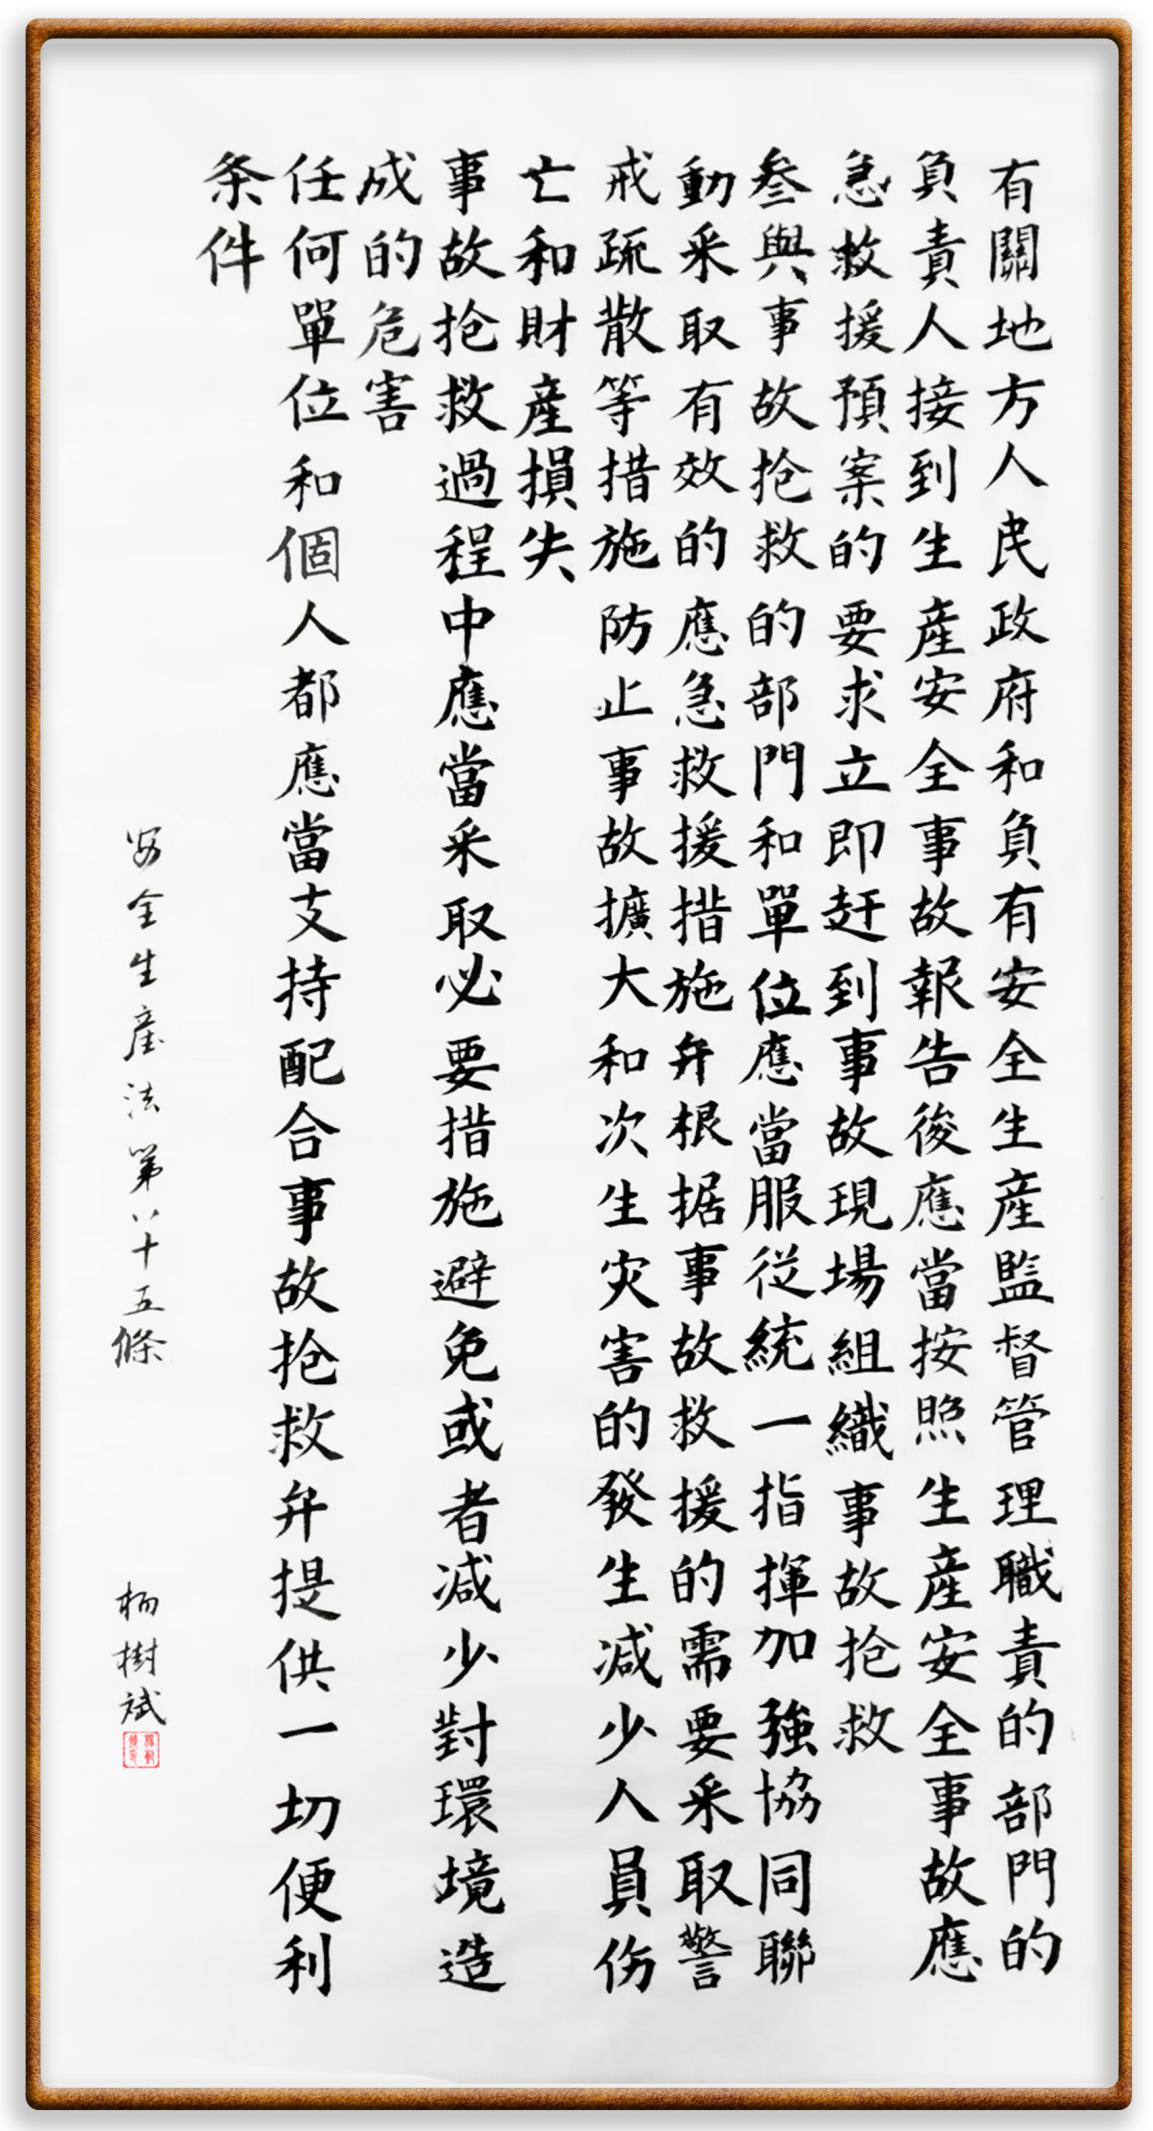 有關地方人民政府和負有安全生産監督管理職責的部門的
負責人接到生産安全事故報告後應當按照生産安全事故應
急救援預案的要求立即赶到事故現場組織事故抢救
叁與事故抢救的部門和單位應當服從統一指揮加強協同聯
動采取有效的應急救援措施并根据事故救援的需要采取警
戒疏散等措施防止事故擴大和次生灾害的發生减少人員伤
亡和財産損失
事故抢救過程中應當采取必要措施避免或者减少對環境造
成的危害
任何單位和個人都應當支持配合事故抢救并提供一切便利
条件
安全生産法第八十五條
楊樹斌